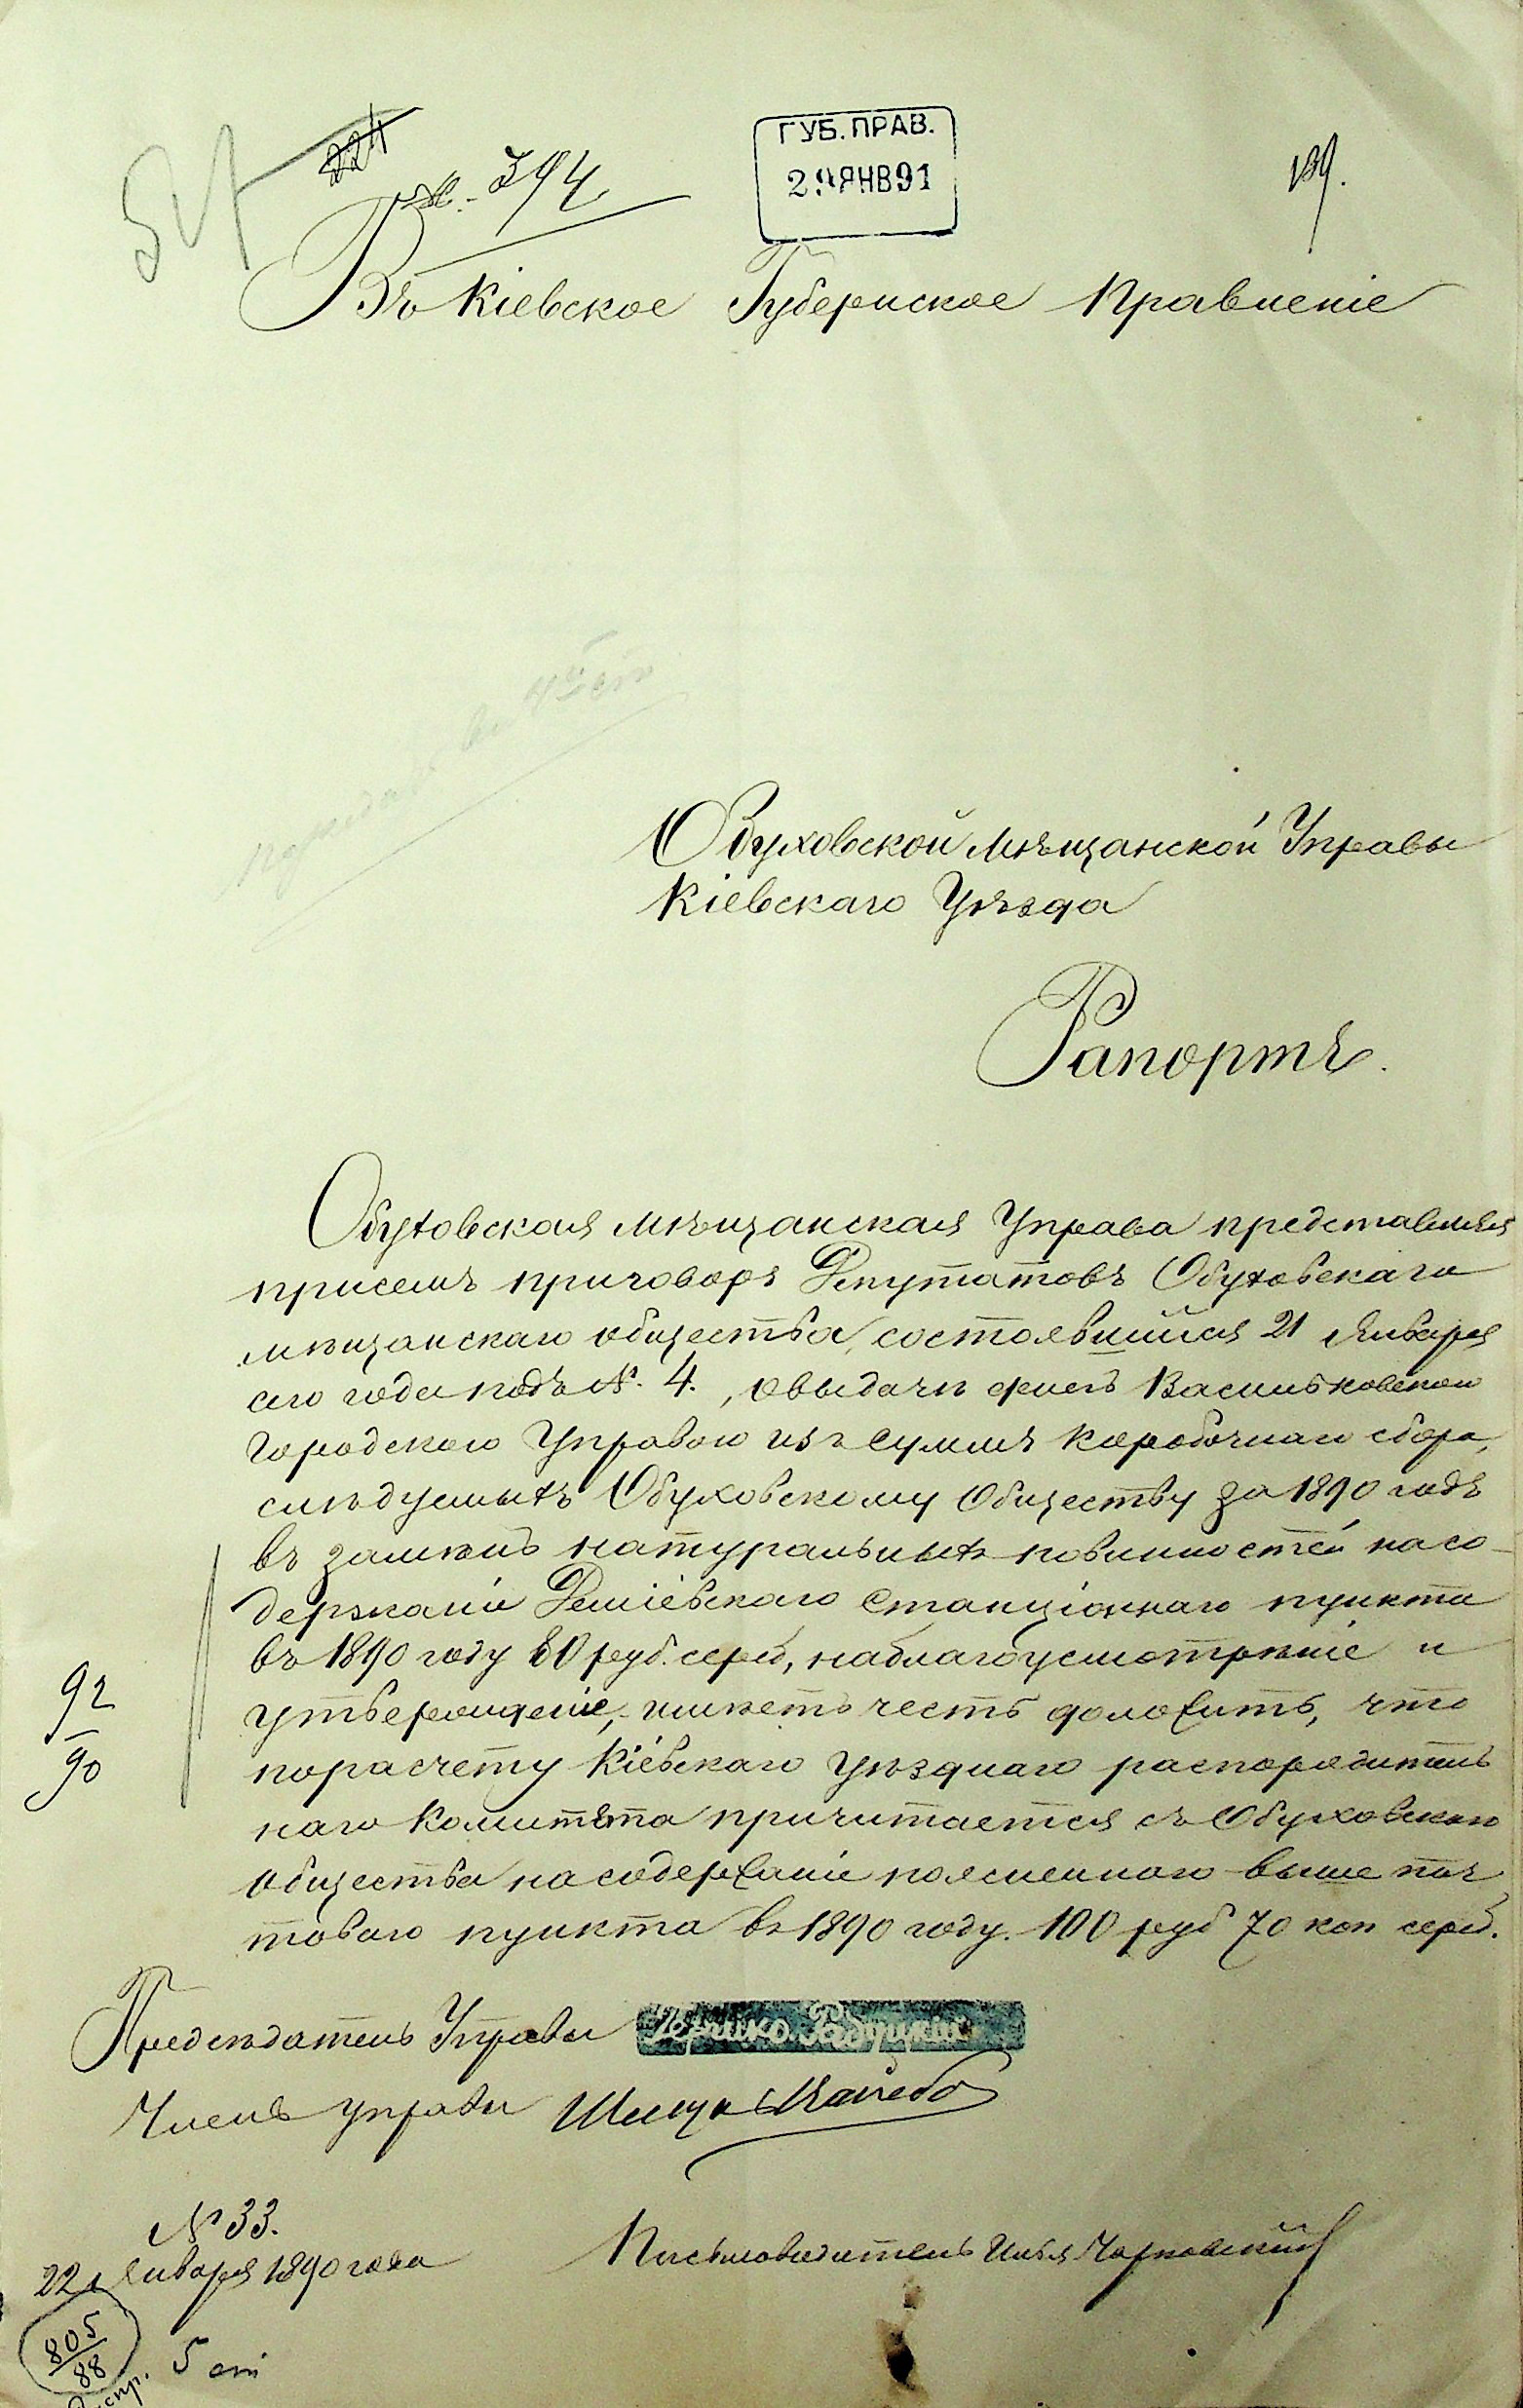 224
№ 394
ГУБ. ПРАВ.
29 ЯНВ 91
139.
Въ Кіевское Губернское Правленіе
Обуховской Мѣщанской Управы
Кіевскаго Уѣзда
Рапортъ.
Обуховская мѣщанская Управа представляя
присемъ приговоръ Депутатовъ Обуховскаго
мѣщанскаго общества, состоявшійся 21 Января
сего года подъ №. 4., о выдачѣ Васильковскою
Городскою Управою изъ суммъ коробочнаго сбора,
слѣдуемыхъ Обуховскому Обществу за 1890 годъ
въ замѣнъ натуральныхъ повинностей на со-
держаніе Деміевскаго Станціоннаго пункта
въ 1890 году 80 руб. сереб, на благоусмотрѣніе и
утвержденіе, имѣетъ честь доложить, что
по расчету Кіевскаго Уѣзднаго распорядитель
наго Комитета причитается съ Обуховскаго
общества на содержаніе поясненнаго выше поч
товаго пункта въ 1890 году. 100 руб 70 коп сереб.
92
90
Предсѣдатель Управы
Членъ управы
№ 33.
22 Января 1890 года
Письмоводитель Илья Чарновскій
805
88
5 ст